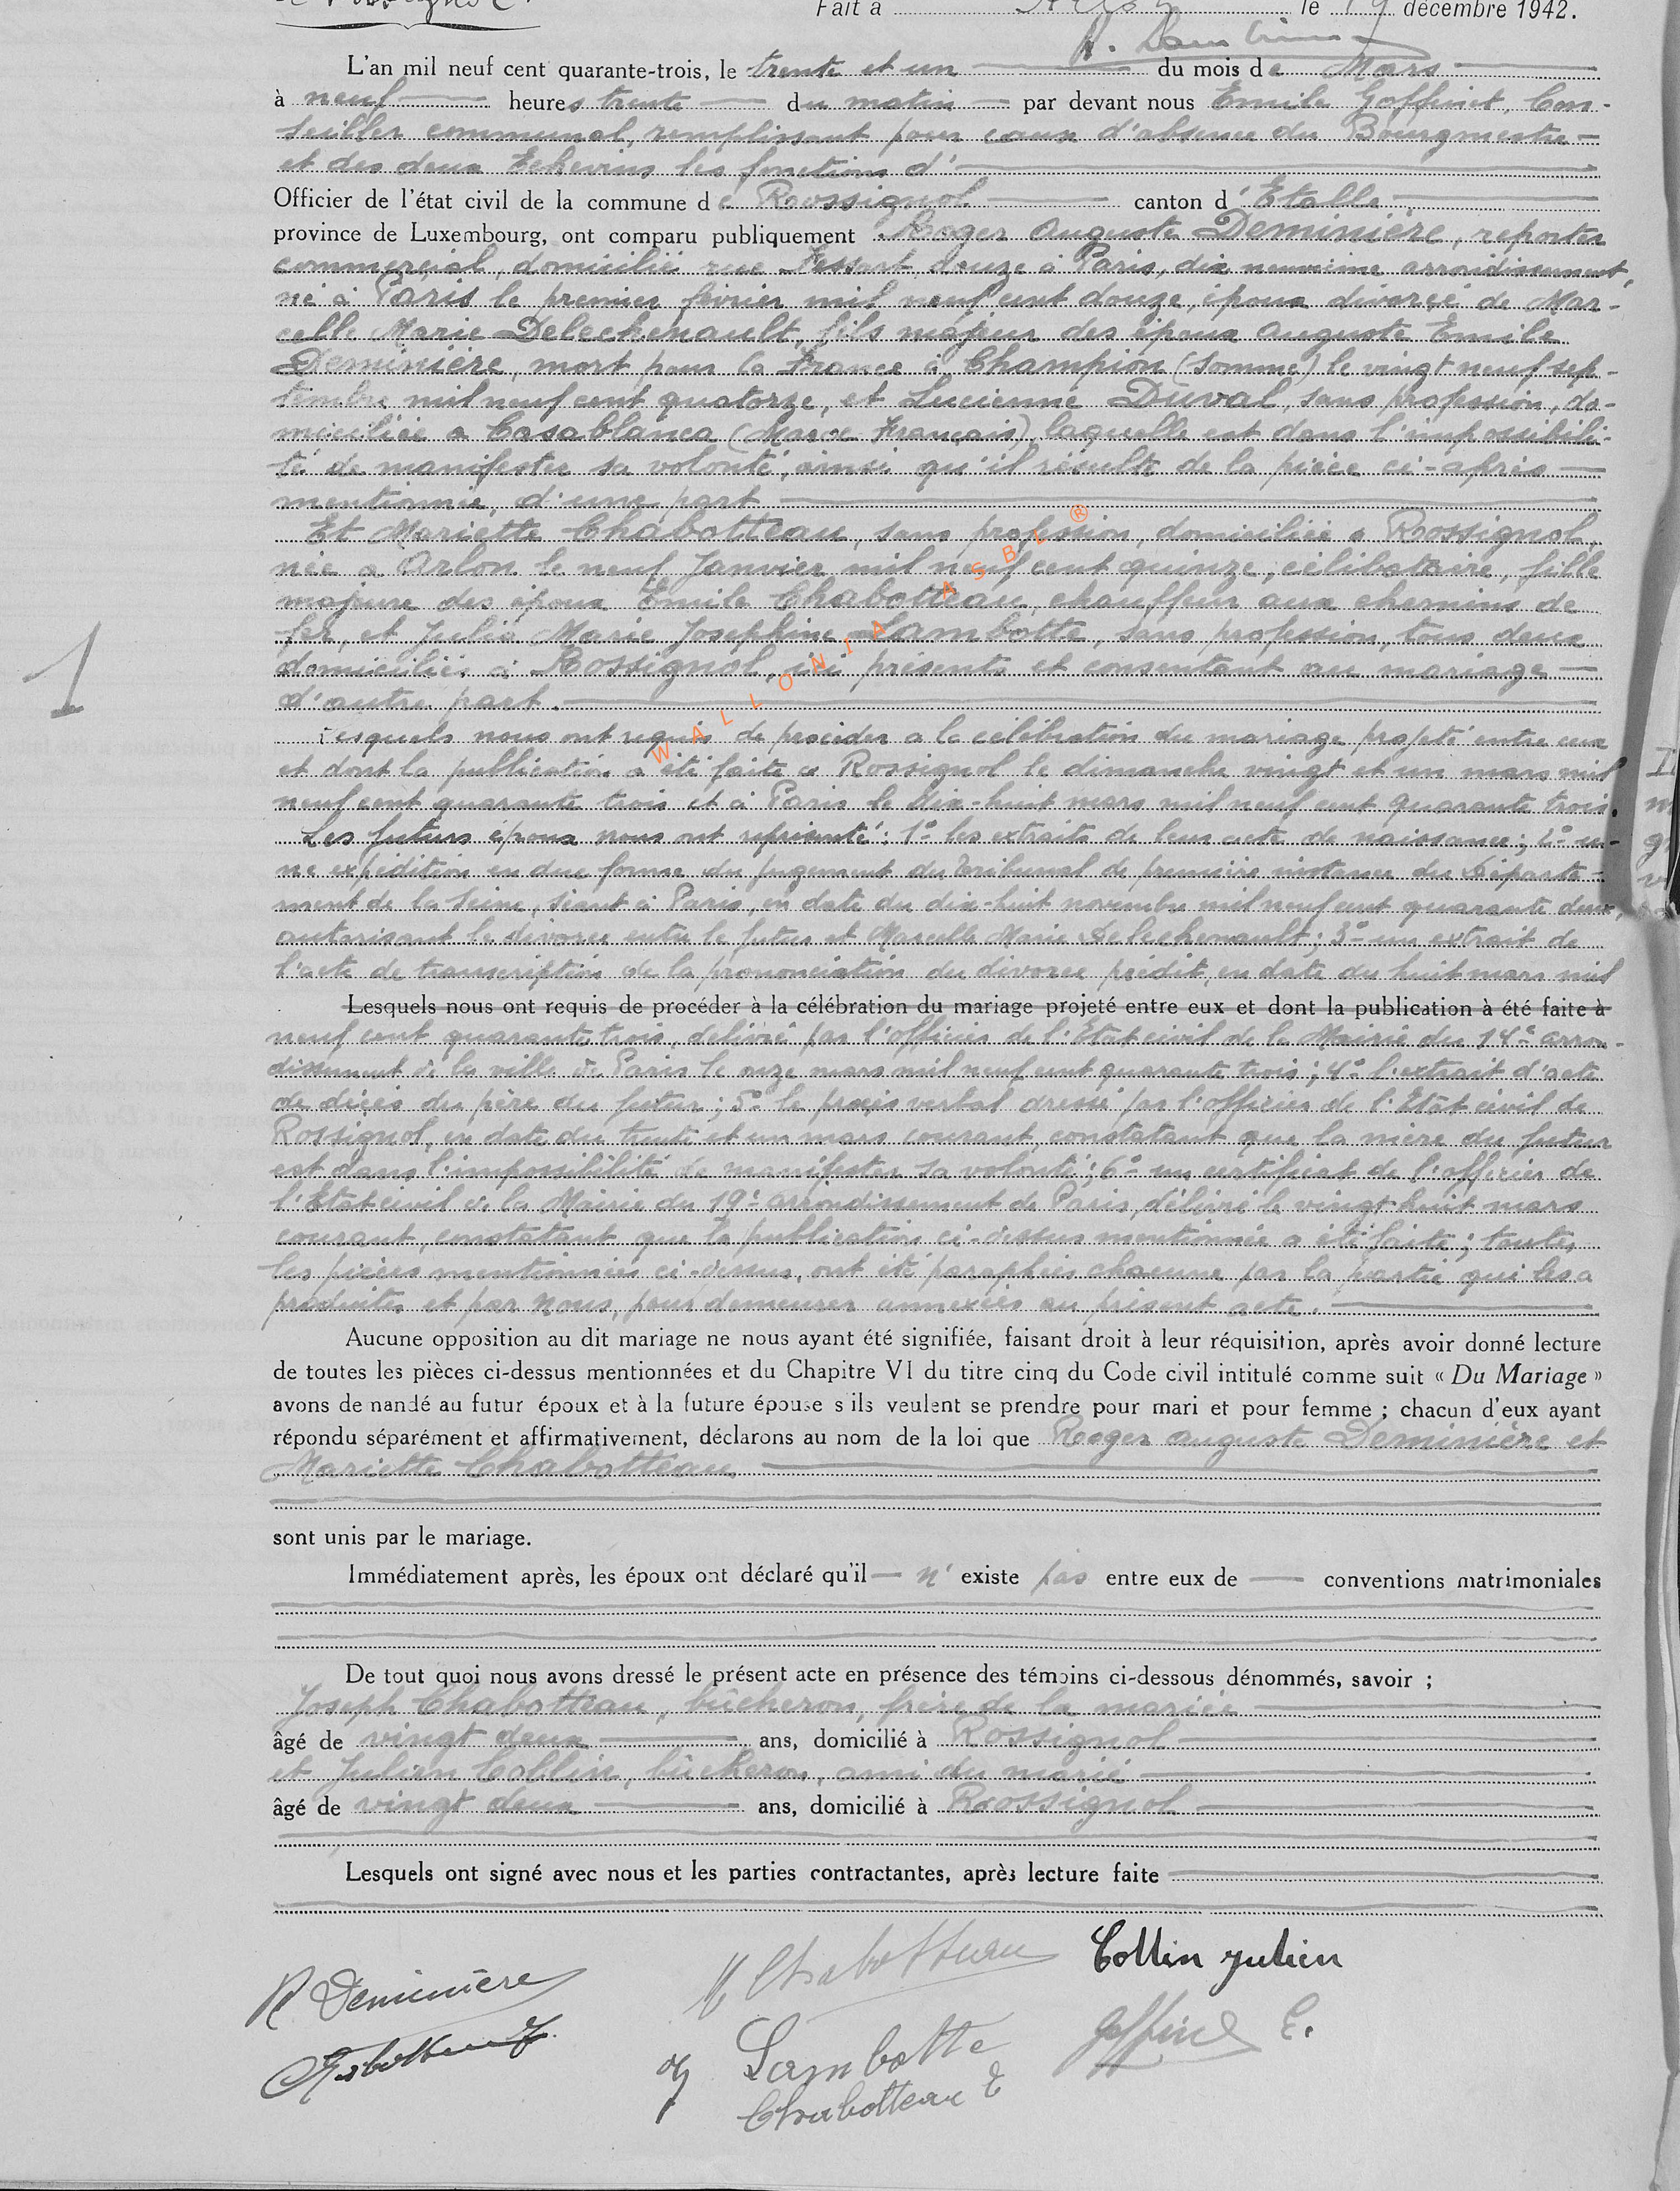 Fait à Arlon le 19 décembre 1942.
L'an mil neuf cent quarante-trois, le trente et un du mois de Mars
à neuf heures trente du matin par devant nous Emile Goffinet, Con-
seiller communal, remplissant pour cause d'absence du Bourgmestre
et des deux Echevins les fonctions d'
Officier de l'état civil de la commune de Rossignol canton d'Etalle
province de Luxembourg, ont comparu publiquement Roger Auguste Deminière, reporter
commercial, domicilié rue Fessart, douze à Paris, dix neuvième arrondissement,
né à Paris le premier février mil neuf cent douze, époux divorcé de Mar-
celle Marie Delechenault, fils majeur des époux Auguste Emile
Deminière, mort pour la France à Champion (Somme) le vingt neuf sep-
tembre mil neuf cent quatorze, et Lucienne Duval, sans profession, do-
miciliée à Casablanca (Maroc Français), laquelle est dans l'impossibili-
té de manifester sa volonté, ainsi qu'il résulte de la pièce ci-après
mentionnée, d'une part
Et Mariette Chabotteau, sans profession, domiciliée à Rossignol,
née à Arlon le neuf Janvier mil neuf cent quinze, célibataire, fille
majeure des époux Emile Chabotteau, chauffeur aux chemins de
fer, et Julie Marie Josephine Lambotte, sans profession, tous deux
domiciliés à Rossignol, ici présents et consentant au mariage
d'autre part.
Lesquels nous ont requis de procéder a la célébration du mariage projeté entre eux
et dont la publication a été faite à Rossignol le dimanche vingt et un mars mil
neuf cent quarante trois et à Paris le dix-huit mars mil neuf cent quarante trois.
Les futurs époux nous ont représenté: 1° les extraits de leur acte de naissance; 2° u-
ne expédition en due forme du jugement du Tribunal de première instance du Départe-
ment de la Seine, séant à Paris, en date du dix-huit novembre mil neuf cent quarante deux,
autorisant le divorce entre le futur et Marcelle Marie Delechenault; 3° un extrait de
l'acte de transcription de la prononciation du divorce prédit, en date du huit mars mil
Lesquels nous ont requis de procéder à la célébration du mariage projeté entre eux et dont la publication à été faite à
neuf cent quarante trois, délivré par l'officier de l'Etat civil de la Mairie du 14e arron-
dissement de la ville de Paris le onze mars mil neuf cent quarante trois; 4° l'extrait d'acte
de décès du père du futur; 5° le procès verbal dressé par l'officier de l'Etat civil de
Rossignol, en date du trente et un mars courant, constatant que la mère du futur
est dans l'impossibilité de manifester sa volonté; 6° un certificat de l'officier de
l'Etat civil de la Mairie du 19e arrondissement de Paris, délivré le vingt-huit mars
courant, constatant que la publication ci-dessus mentionnée a été faite; toutes
les pièces mentionnées ci-dessus, ont été paraphées chacune par la partie qui les a
produites et par nous, pour demeurer annexées au présent acte.
Aucune opposition au dit mariage ne nous ayant été signifiée, faisant droit à leur réquisition, après avoir donné lecture
de toutes les pièces ci-dessus mentionnées et du Chapitre VI du titre cinq du Code civil intitulé comme suit « Du Mariage »
avons de nandé au futur époux et à la future épouse s ils veulent se prendre pour mari et pour femme ; chacun d'eux ayant
répondu séparément et affirmativement, déclarons au nom de la loi que Roger Auguste Deminière et
Mariette Chabotteau
sont unis par le mariage.
Immédiatement après, les époux ont déclaré qu'il n' existe pas entre eux de conventions matrimoniales
De tout quoi nous avons dressé le présent acte en présence des témoins ci-dessous dénommés, savoir ;
Joseph Chabotteau, bûcheron, frère de la mariée
âgé de vingt deux ans, domicilié à Rossignol
et Julien Collin, bûcheron, ami du marié
âgé de vingt deux ans, domicilié à Rossignol
Lesquels ont signé avec nous et les parties contractantes, après lecture faite
R Deminière
M Chabotteau
Collin Julien
Chabotteau J.
Lambotte
Goffinet E.
Chabotteau E
1
WALLONIA ASBL ®